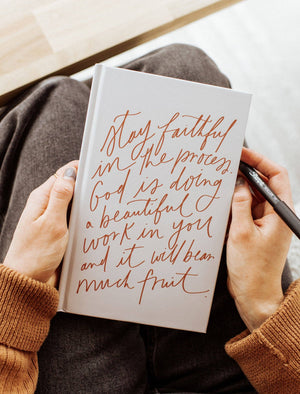 stay faithful
in the process.
God is doing
a beautiful
work in you
and it will bear
much fruit.